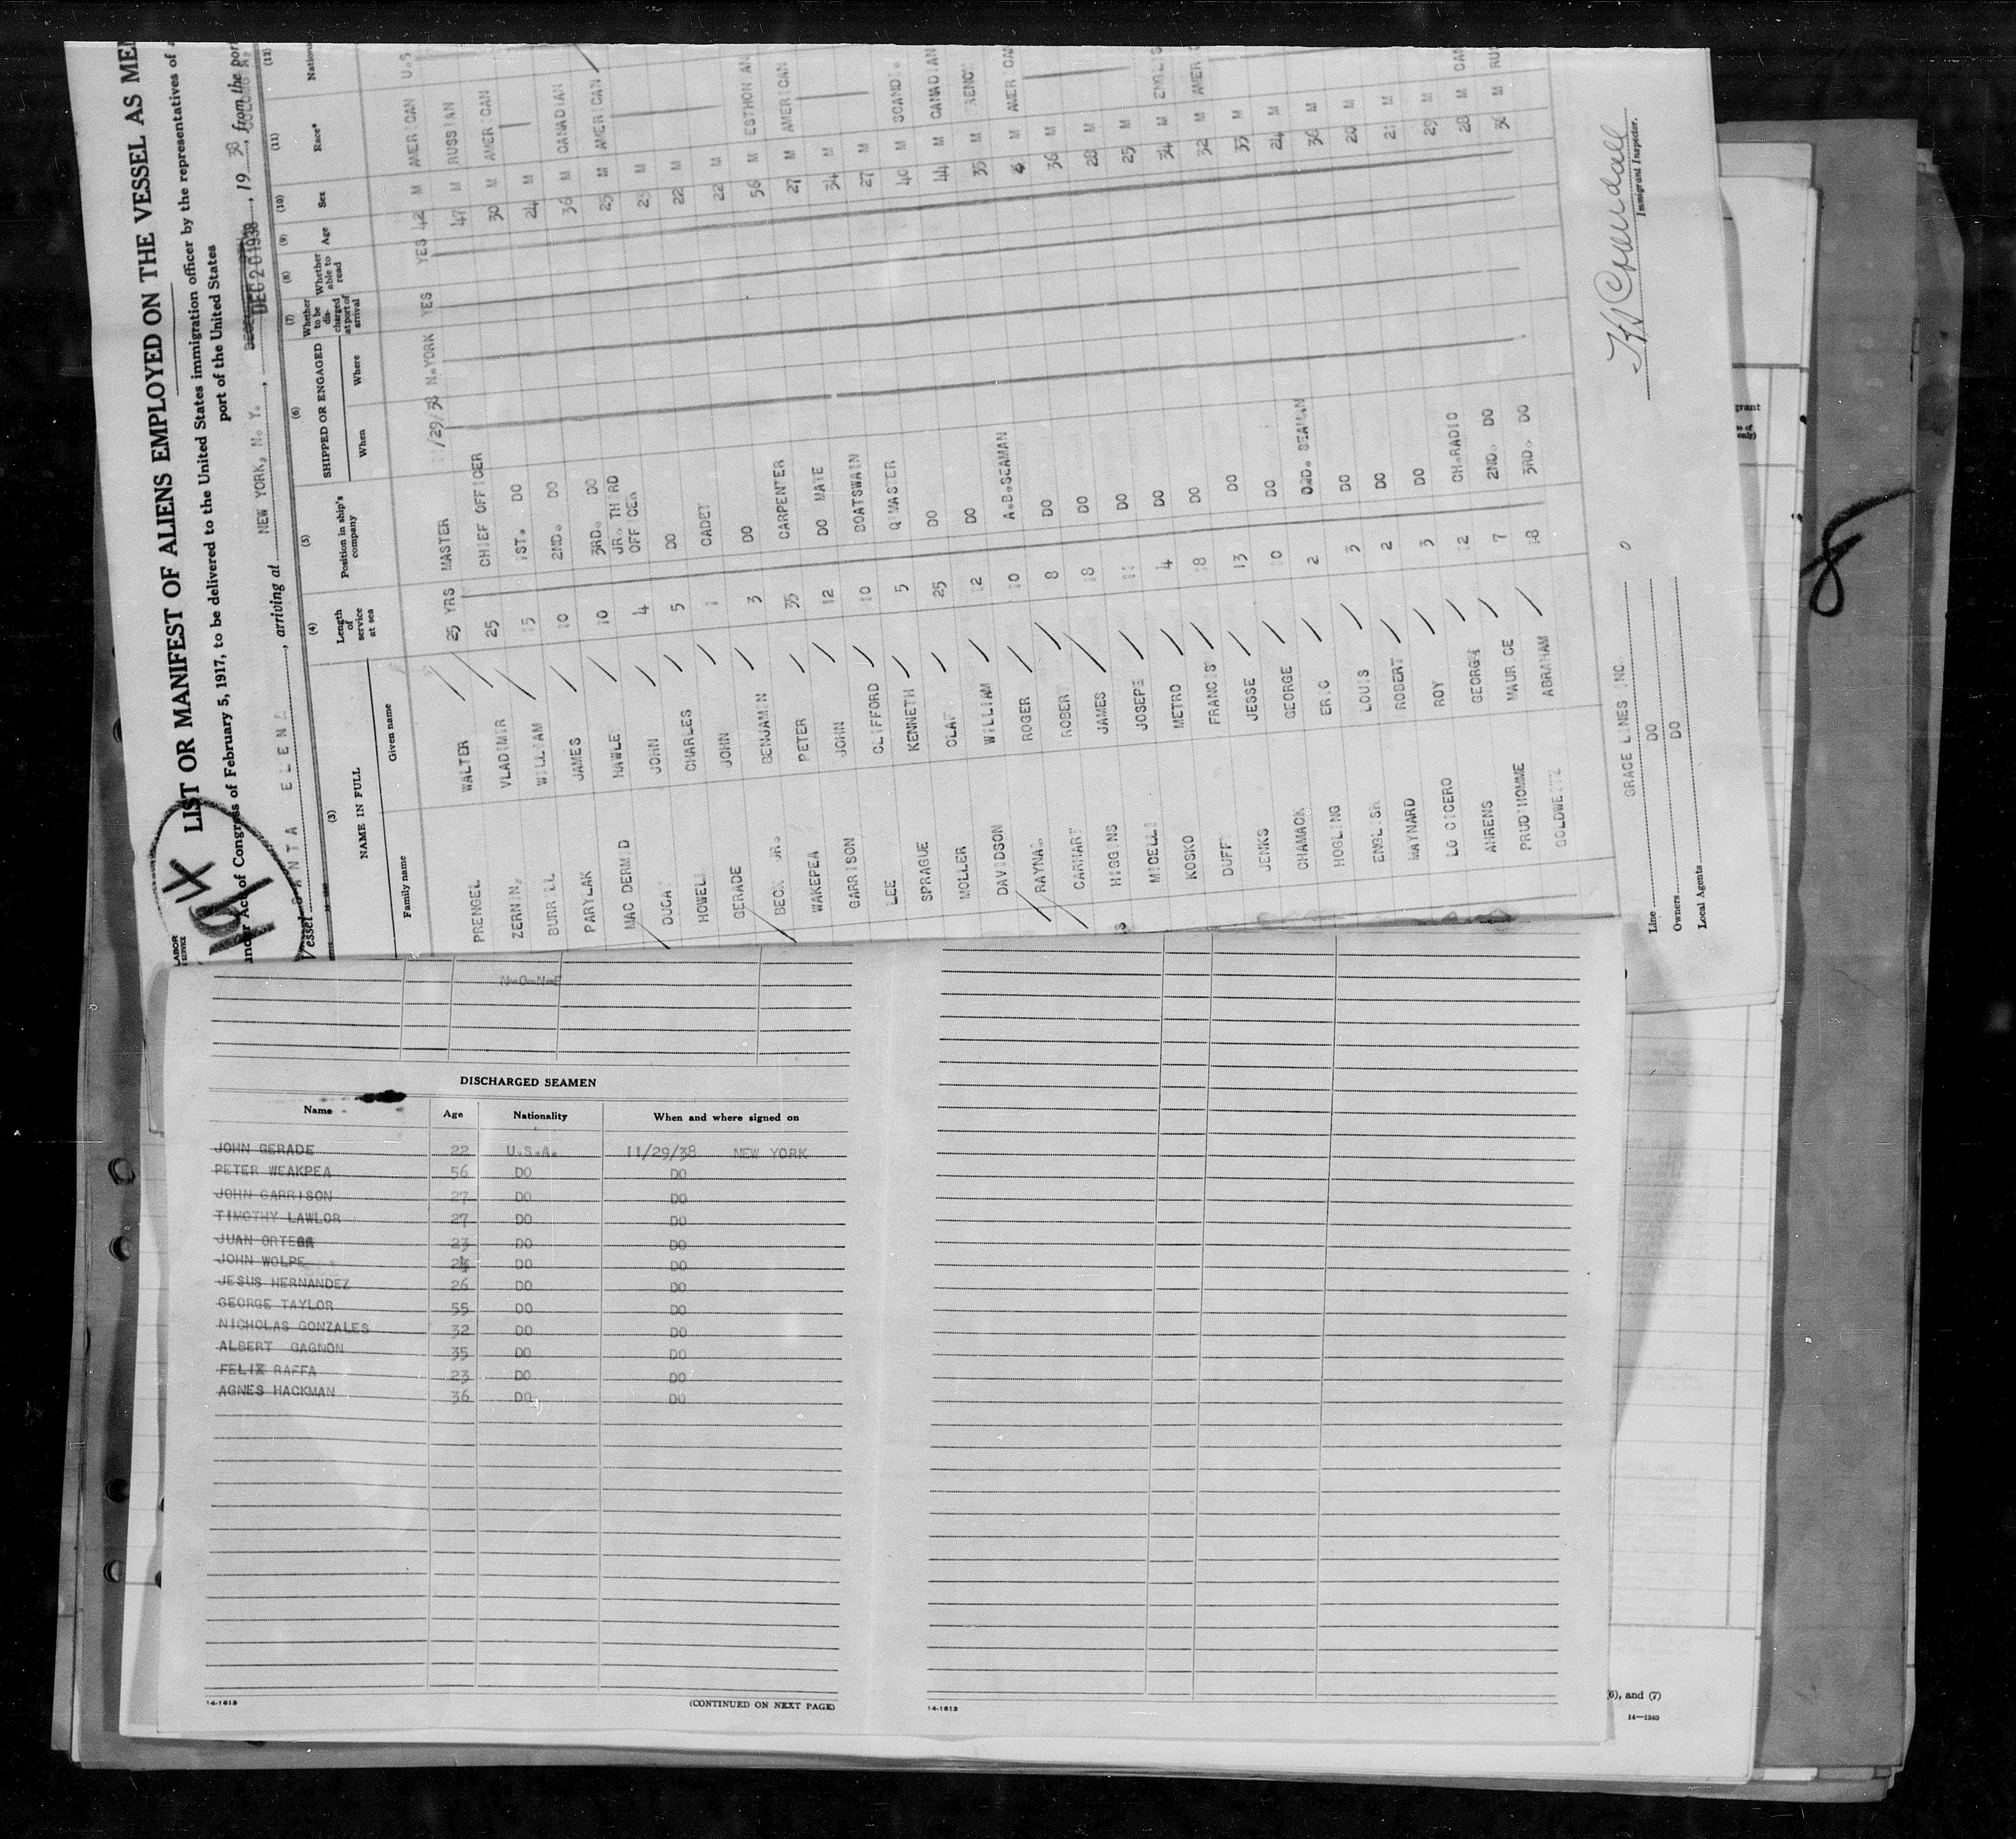 LIST OR MANIFEST OF ALIENS EMPLOYED ON THE VESSEL AS
under Act of Congress of February 5, 1917, to be delivered to the United States immigration officer by the representatives of
port of the United States
Vessel SANTA ELENA, arriving at NEW YORK, N. Y., DEC 20 1938, 19 38, from the port
(3) (4) (5) (6) (7) (8) (9) (10) (11) (12)
NAME IN FULL
Family name Given name
Length of service at sea
Position in ship's company
SHIPPED OR ENGAGED
When Where
Whether to be discharged at port of arrival
Whether able to read
Age Sex Race*
PRENGEL WALTER 25 YRS MASTER 11/29/38 N.YORK YES YES 42 M AMERICAN U.S
VLADIMIR 25 CHIEF OFFICER 47 M RUSSIAN
BURRILL WILLIAM 15 1ST. DO 30 M AMERICAN
PARYLAK JAMES 10 2ND. DO 24 M
MAC DERMID HAWLE 10 3RD. DO 36 M CANADIAN
JOHN 4 JR. THIRD OFFICER 25 M AMERICAN
HOWELL CHARLES 5 DO 25 M
GERADE JOHN 1 CADET 22 M
BECK JR. BENJAMIN 3 DO 22 M
WAKEPEA PETER 35 CARPENTER 56 M ESTHONIAN
GARRISON JOHN 12 DO MATE 27 M AMERICAN
LEE CLIFFORD 10 BOATSWAIN 34 M
SPRAGUE KENNETH 5 Q'MASTER 27 M
MOLLER OLAF 25 DO 40 M SCANDI.
DAVIDSON WILLIAM 12 DO 44 M CANADIAN
RAYNAL ROGER 10 A.B.SEAMAN 35 M
CARHART ROBERT 8 DO M
HIGGINS JAMES 18 DO 36 M
MICELLI JOSEPH 11 DO 28 M
KOSKO METRO 4 DO 25 M
DUFFY FRANCIS 18 DO 34 M ENGLIS
JENKS JESSE 13 DO 32 M AMER
CHAMACK GEORGE 10 DO 33 M
HOGLING ERIC 2 ORD. SEAMAN 24 M
ENGLISH LOUIS 3 DO 36 M
MAYNARD ROBERT 2 DO 20 M
LO CICERO ROY 3 DO 21 M
AHRENS GEORGE 12 CH.RADIO 29 M
PRUDHOMME MAURICE 7 2ND. DO 28 M CAN
ABRAHAM 18 3RD. DO 36 M RUS
Line GRACE LINES INC.
Owners DO
Local Agents DO
Immigrant Inspector.
N-O-N-E
DISCHARGED SEAMEN
Name Age Nationality When and where signed on
JOHN GERADE 22 U.S.A. 11/29/38 NEW YORK
PETER WEAKPEA 56 DO DO
JOHN GARRISON 27 DO DO
TIMOTHY LAWLOR 27 DO DO
JUAN ORTEGA 23 DO DO
JOHN WOLPE 24 DO DO
JESUS HERNANDEZ 26 DO DO
GEORGE TAYLOR 55 DO DO
NICHOLAS GONZALES 32 DO DO
ALBERT GAGNON 35 DO DO
FELIX RAFFA 23 DO DO
AGNES HACKMAN 36 DO DO
14-1613 (CONTINUED ON NEXT PAGE)
14-1613
(6), and (7)
14—1940
8